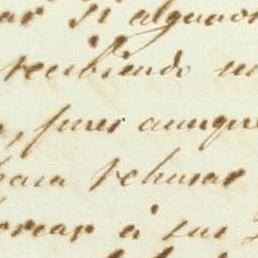 ar si algunos
recibiendo un
, pues aunque
para rehusar
orear á sus